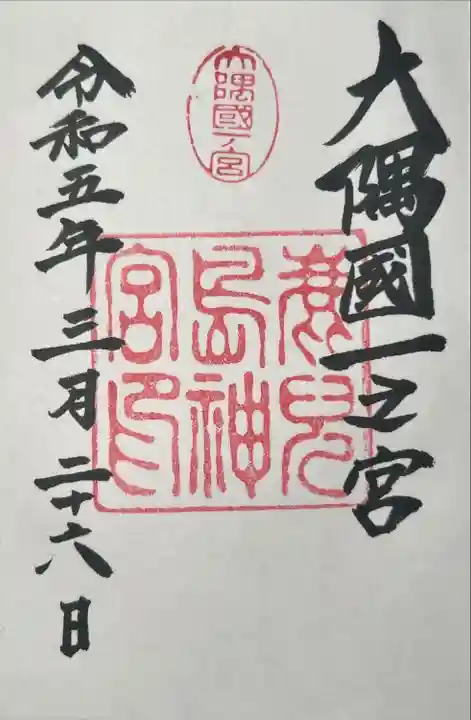 大隅國一之宮
大隅國一ノ宮
鹿児
島神
宮印
令和五年三月二十六日